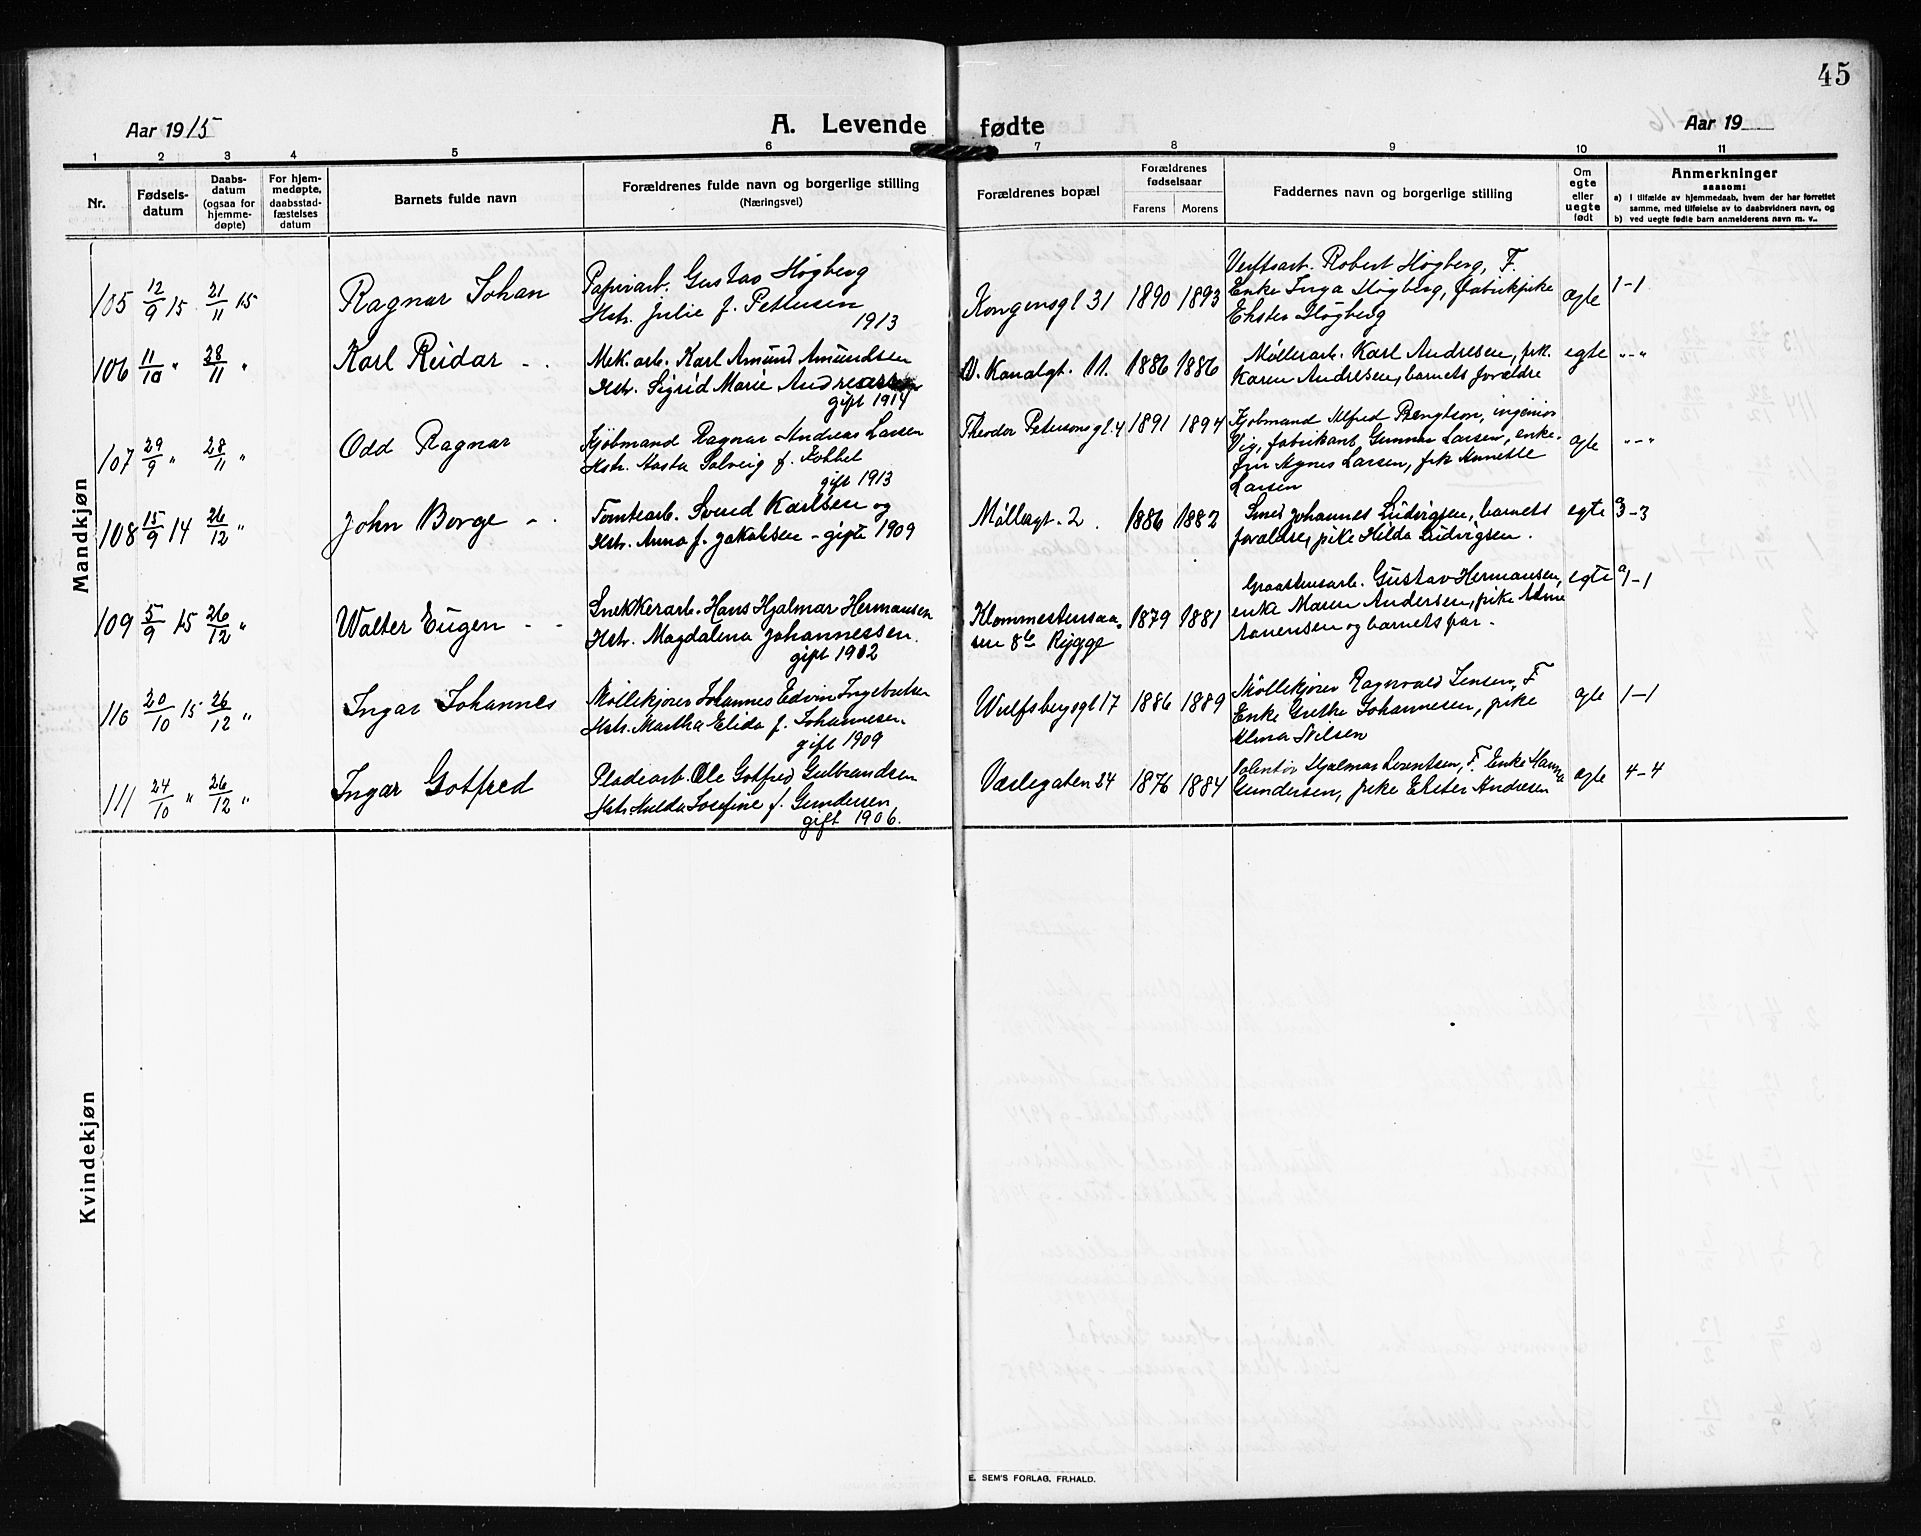 45
Aar 1915
A. Levende fødte
Aar 19
1 2 3 4 5 6 7 8 9 10 11
Nr.
Fødsels-
datum
Daabs-
datum
(ogsaa for
hjemme-
døpte)
For hjem-
medøpte,
daabsstad-
fæstelses
datum
Barnets fulde navn
Forældrenes fulde navn og borgerlige stilling
(Næringsvei)
Forældrenes bopæl
Forældrenes
fødselsaar
Farens Morens
Faddernes navn og borgerlige stilling
Om
egte
eller
uegte
født
Anmerkninger
saasom:
a) I tilfælde av hjemmedaab, hvem der har forrettet
samme, med tilføielse av to daabsvidners navn, og
b) ved uegte fødte barn anmelderens navn m. v..
Mandkjøn
105 12/9 15 21/11 15
Ragnar Johan
Papirarb. Gustav Høgberg
Hstr. Julie f. Pettersen
1913
Kongensgt 31 1890 1893
Verftsarb. Robert Høgberg, F.
Enke Inga Høgberg, fabrikpike
Ekster Høgberg
egte 1-1
106 11/10 " 28/11 "
Karl Reidar - -
Mek. arb. Karl Amund Amundsen
Hstr. Sigrid Marie Andreassen
gift 1914
N. Kanalgt. 11. 1886 1886
Møllerarb. Karl Andresen, frk.
Karen Andresen, barnets forældre
egte "-"
107 29/9 " 28/11 "
Odd Ragnar
Kjøbmand Ragnar Andreas Larsen
Hstr. Aasta Solveig f.
gift 1913
Theodor Petersonsgt. 4 1891 1894
Kjøbmand Alfred Bengtson, ingeniør
Vig, fabrikant Gunnar Larsen, enke-
fru Agnes Larsen, frk Annette
Larsen
egte "-"
108 15/9 14 26/12 "
John Borge - -
Tomtearb. Svend Karlsen og
Hstr. Anna f. Jakobsen - gifte 1909
Møllergt. 2. 1886 1882
Smed Johannes Ludvigsen, barnets
forældre, pike Hilda Ludvigsen.
egte 3-3
109 5/9 15 26/12 "
Walter Eugen - -
Snekkerarb. Hans Hjalmar Hermansen
Hstr. Magdalena Johannessen.
gift 1902
Klommestensaa-
sen 8b Rygge 1879 1881
Graastensarb. Gustav Hermansen,
enke Maren Andersen, pike
og barnets far.
egte 1-1
110 20/10 15 26/12 "
Ingar Johannes
Møllekjører Johannes Edvin Ingebretsen
Hstr. Martha Elida f. Johannesen.
gift 1909
Wulfsbergsgt 17 1886 1889
Møllekjører Ragnvald Jensen, F
Enke Grethe Johannesen, pike
Alma Nilsen
egte 1-1
111 24/10 " 26/12 "
Ingar Gotfred
Pladearb. Ole Gotfred Gulbrandsen
Hstr. Hulda Josefine f. Gundersen
gift 1906.
Værlegaten 24 1876 1884
Hjalmar Lorentsen, F. Enke Hanna
Gundersen, pike Ester Andresen
egte 4-4
Kvindekjøn
E. SEM'S FORLAG, FR.HALD.